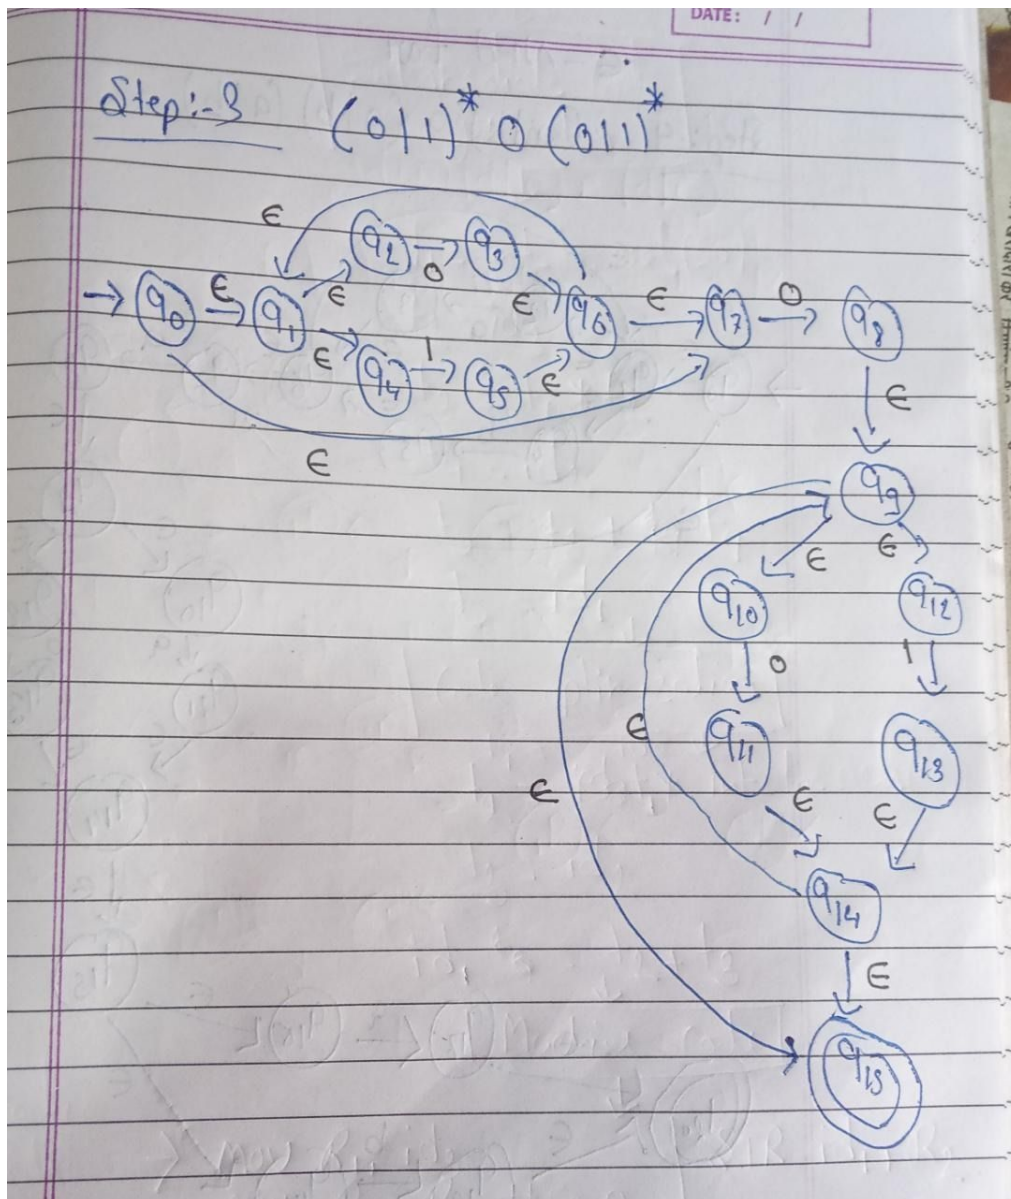 DATE: / /
Step:-3 (0|1)* 0 (0|1)*
ϵ q2 0 q3
q0 ϵ q1 ϵ ϵ q6 ϵ q7 0 q8
ϵ q4 1 q5 ϵ
ϵ
ϵ
q9
ϵ ϵ
q10 q12
0 1
ϵ q11 q13
ϵ ϵ ϵ
q14
ϵ
q15